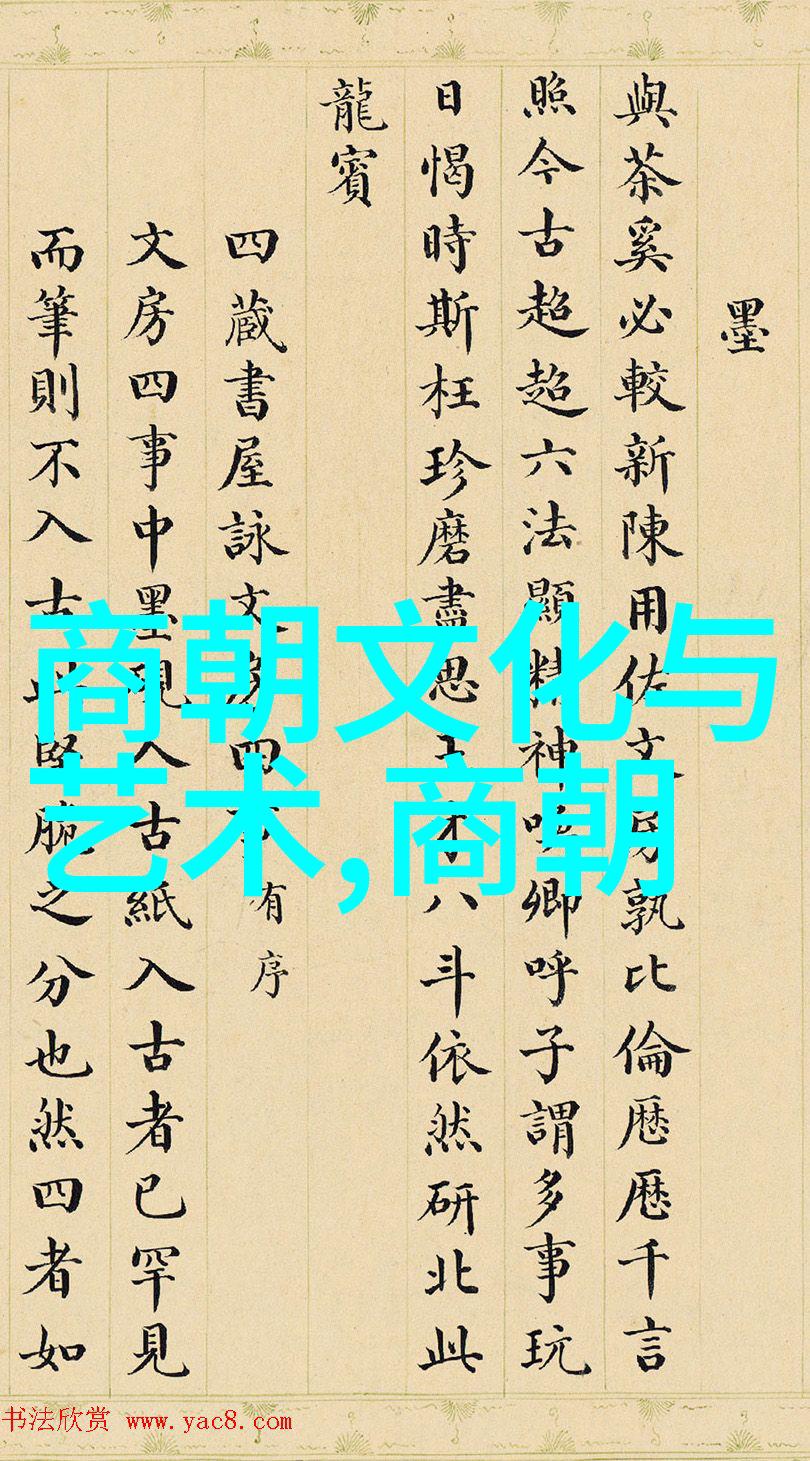 墨
與茶奚必較新陳用佐文房孰比倫歷歷千言
照今古超超六法顯精神呼卿呼子謂多事玩
日愒時斯枉珍磨盡思王才八斗依然研北此
龍賓
四藏書屋詠文房四事有序
文房四事中墨現入古紙入古者已罕見
而筆則不入古此堅脆之分也然四者如
商朝文化与
艺术,商朝
书法欣赏 www.yac8.com